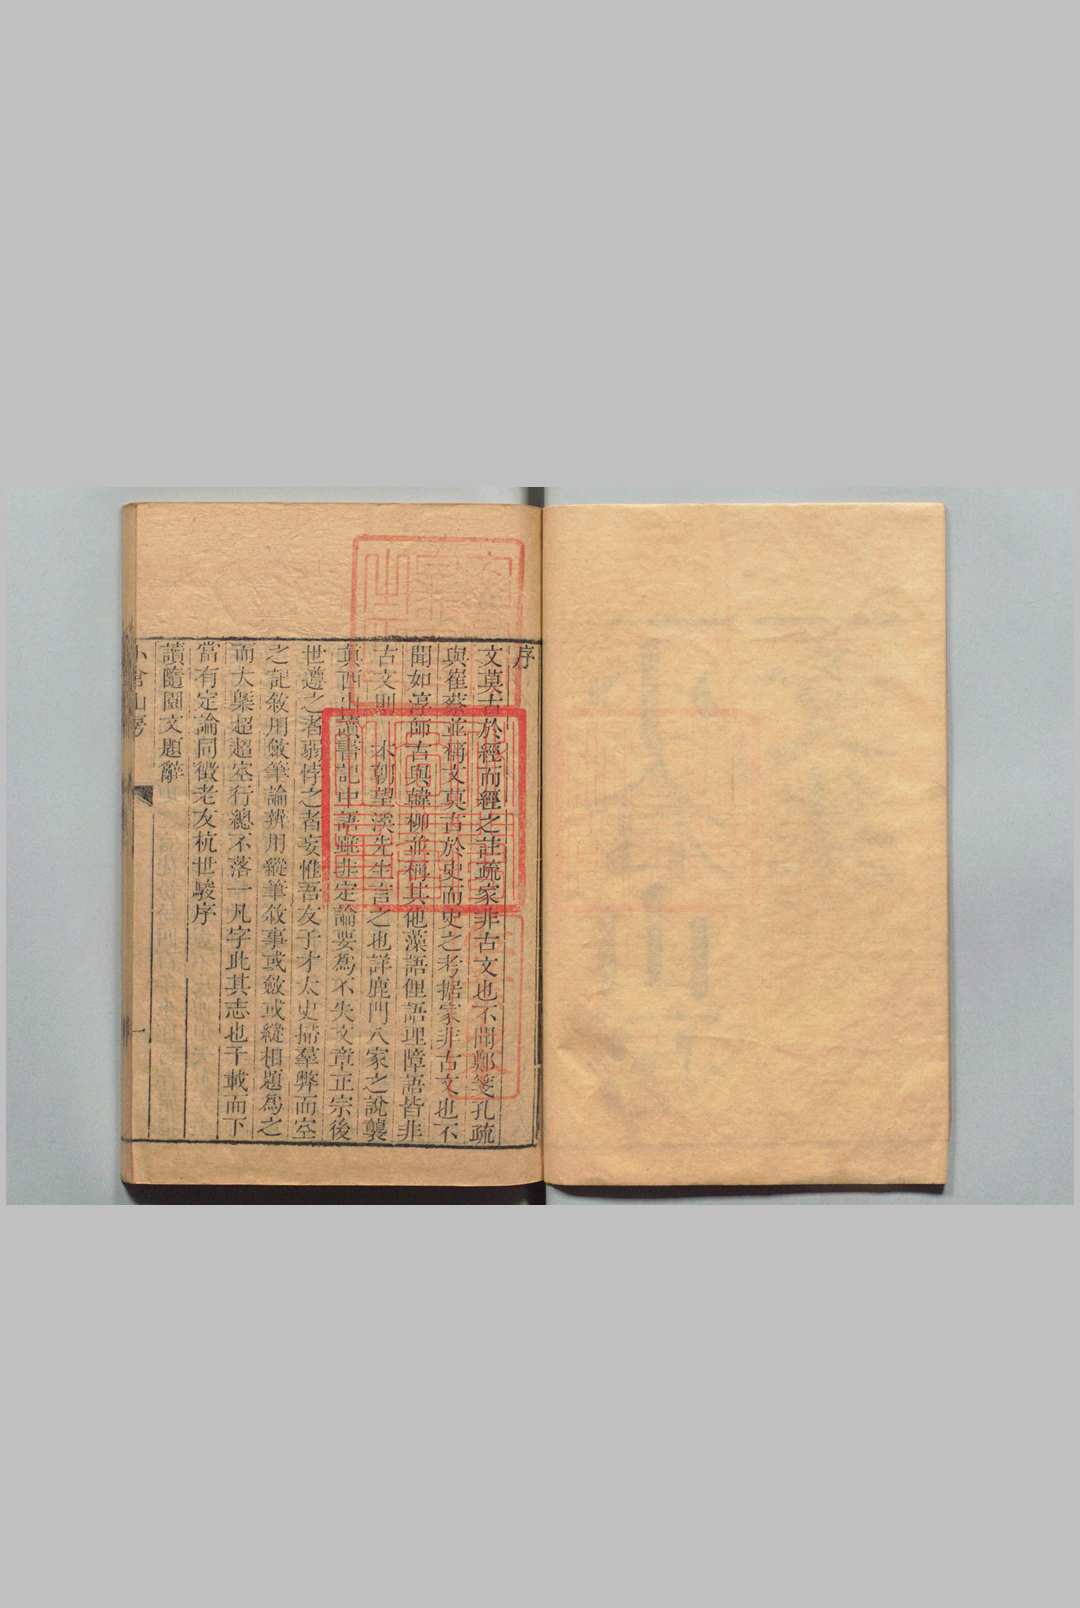 序
文莫古於經而經之註疏家非古文也不聞鄭箋孔疏
與崔蔡並稱文莫古於史而史之考据家非古文也不
聞如淳師古與韓柳並稱其他藻語俚語理障語皆非
古文則 本朝望溪先生言之也詳鹿門八家之說襲
真西山讀書記中語雖非定論要為不失文章正宗後
世遵之者弱悖之者妄惟吾友子才太史掃羣弊而空
之記敘用斂筆論辨用縱筆敘事或斂或縱相題為之
而大槩超超空行總不落一凡字此其志也千載而下
當有定論同徵老友杭世駿序
讀隨園文題辭
小倉山房
一